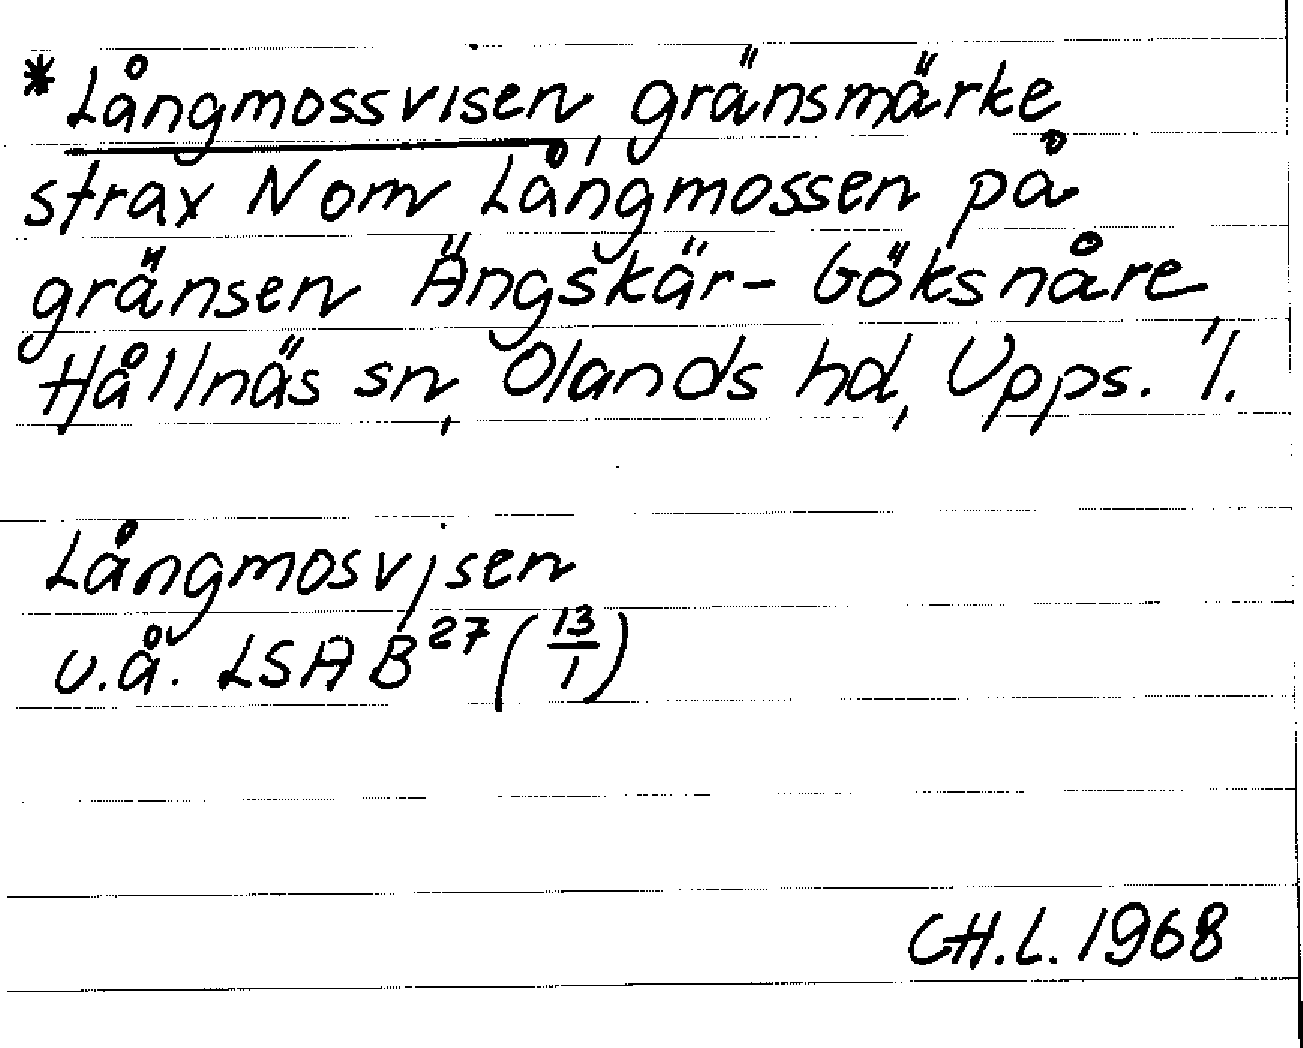 *Långmossvisen, gränsmärke
strax N om Långmossen på
gränsen Ängskär - Göksnåre,
Hållnäs sn, Olands hd, Upps. l.
Långmosvjsen
u.å. LSA B²⁷ (13/1)
CH.L. 1968